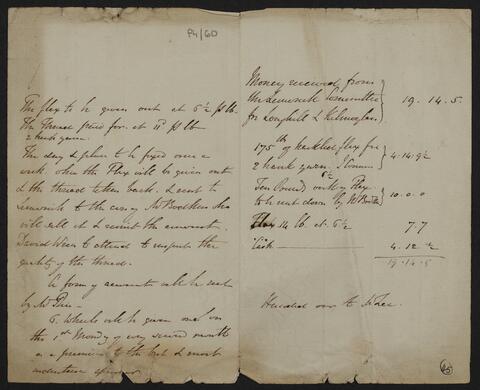 P4/60
The flex to be given out at 6½ p lb.
The Thread paid for at 11d p lb
2 hank yarn.
The day & place to be fixed once a
week when the Flex will be given out
& the thread taken back. & sent to
to the care of Mr Bodkin who
will sell it & remit the amount.
David to attend to inspect the
quality of the thread.
A form of accounts will be sent
by Mr
6. Wheels will be given out on
the 1st Monday of every second month
as a premium to the best & most
industrious spinner
Money received from
the Limerick Committee
for Longhill & Kilmoylan
19. 14. 5.
175 lb of hackled flex for
2 hank yarn
6½
4.14.9½
Ten Pounds worth of Flex
to be sent down by Mr
10. 0. 0
Flex 14 lb. at 6½
7.7
Cash
4. 12. ½
19. 14. 5
Handed over to